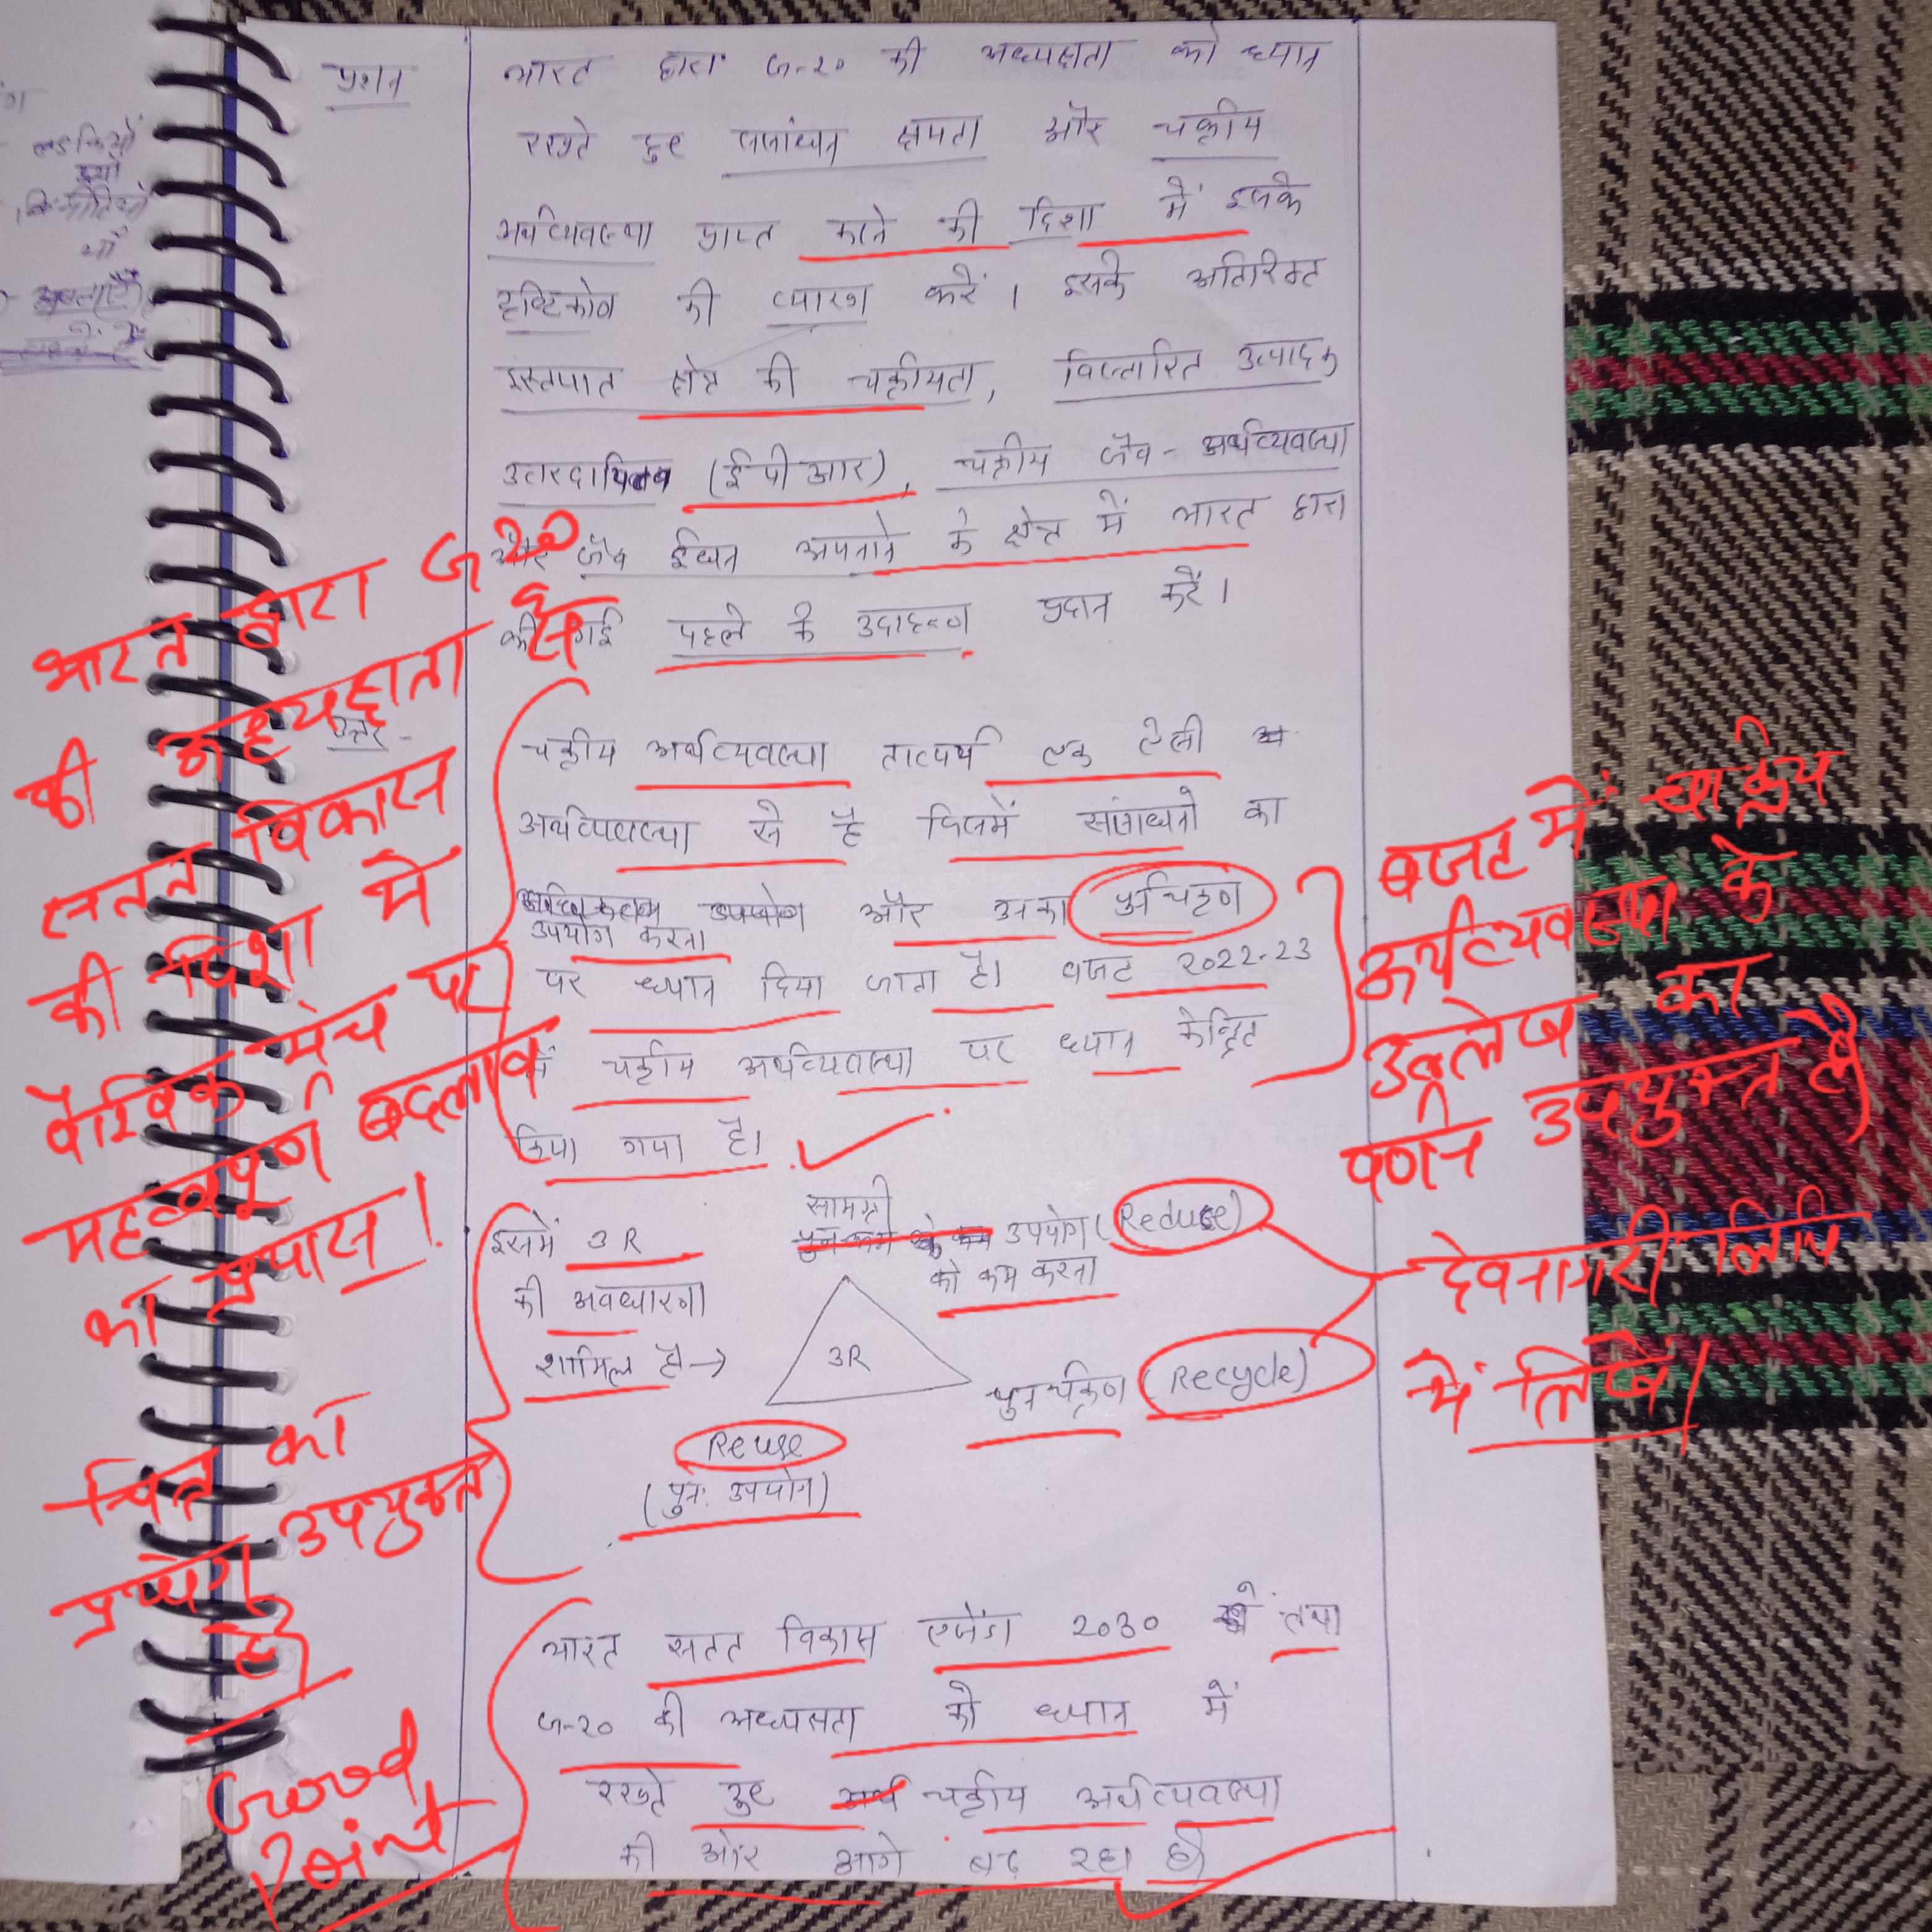 प्रश्न
भारत द्वारा जी-20 की अध्यक्षता को ध्यान
रखते हुए संसाधन क्षमता और चक्रीय
अर्थव्यवस्था प्राप्त करने की दिशा में इसके
दृष्टिकोण की व्याख्या करें। इसके अतिरिक्त
इस्तपात क्षेत्र की चक्रीयता, विस्तारित उत्पादक
उत्तरदायित्व (ईपीआर), चक्रीय जैव-अर्थव्यवस्था
और जैव ईंधन अपनाने के क्षेत्र में भारत द्वारा
की गई पहले के उदाहरण प्रदान करें।
उत्तर-
चक्रीय अर्थव्यवस्था तात्पर्य एक ऐसी
अर्थव्यवस्था से है जिसमें संसाधनो का
उपयोग करना और उनका पुर्नचक्रण
पर ध्यान दिया जाता है। बजट 2022-23
में चक्रीय अर्थव्यवस्था पर ध्यान केन्द्रित
किया गया है।
इसमें 3R
की अवधारणा
शामिल है→
सामग्री
उपयोग (Reduse)
को कम करना
3R
पुनर्चक्रण (Recycle)
Reuse
(पुनः उपयोग)
भारत सतत विकास एजेंडा 2030 तथा
जी-20 की अध्यक्षता को ध्यान में
रखते हुए चक्रीय अर्थव्यवस्था
की ओर आगे बढ़ रहा है।
भारत द्वारा जी 20
की अध्यक्षता
सतत विकास
की दिशा में
वैश्विक मंच पर
महत्वपूर्ण बदलाव
का प्रयास।
चित्र का
प्रयोग उपयुक्त
है।
Good
Point
बजट में चक्रिय
अर्थव्यवस्था के
उल्लेख का
वर्णन उपयुक्त है।
देवनागरी लिपि
में लिखें।